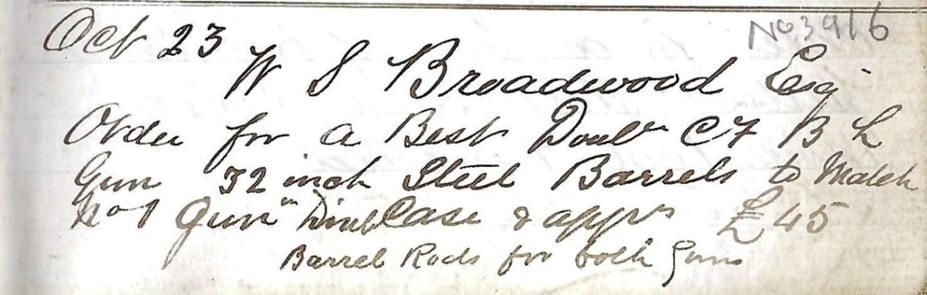 Oct 23 No 3916
W S Broadwood Esq
Order for a Best Double CF B L
Gun 32 inch Steel Barrels to Match
No 1 Gun Doubl Case & apprs £45
Barrel Rods for both Guns